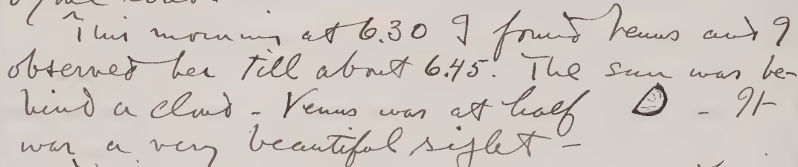 This morning at 6.30 I found Venus and I
observed her till about 6.45. The sun was be-
hind a cloud - Venus was at half - It
was a very beautiful sight -